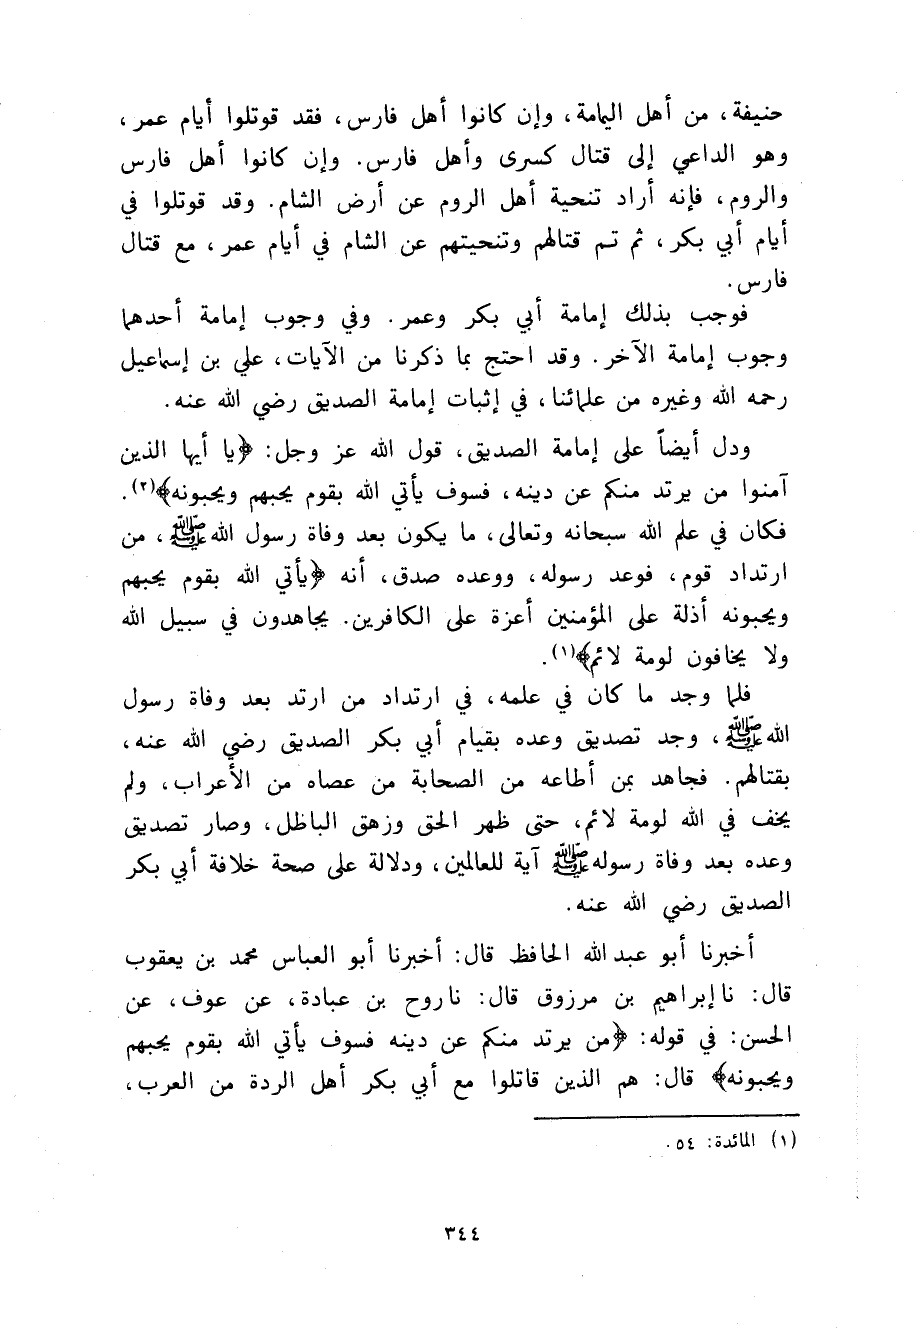 حنيفة، من أهل اليمامة، وإن كانوا أهل فارس، فقد قوتلوا أيام عمر،
وهو الداعي إلى قتال كسرى وأهل فارس. وإن كانوا أهل فارس
والروم، فإنه أراد تنحية أهل الروم عن أرض الشام. وقد قوتلوا في
أيام أبي بكر، ثم تم قتالهم وتنحيتهم عن الشام في أيام عمر، مع قتال
فارس.
فوجب بذلك إمامة أبي بكر وعمر. وفي وجوب إمامة أحدهما
وجوب إمامة الآخر. وقد احتج بما ذكرنا من الآيات، علي بن إسماعيل
رحمه الله وغيره من علمائنا، في إثبات إمامة الصديق رضي الله عنه.
ودل أيضاً على إمامة الصديق، قول الله عز وجل: ﴿يا أيها الذين
آمنوا من يرتد منكم عن دينه، فسوف يأتي الله بقوم يحبهم ويحبونه﴾(٢).
فكان في علم الله سبحانه وتعالى، ما يكون بعد وفاة رسول الله ﷺ، من
ارتداد قوم، فوعد رسوله، ووعده صدق، أنه ﴿يأتي الله بقوم يحبهم
ويحبونه أذلة على المؤمنين أعزة على الكافرين. يجاهدون في سبيل الله
ولا يخافون لومة لائم﴾(١).
فلما وجد ما كان في علمه، في ارتداد من ارتد بعد وفاة رسول
الله ﷺ، وجد تصديق وعده بقيام أبي بكر الصديق رضي الله عنه،
بقتالهم. فجاهد بمن أطاعه من الصحابة من عصاه من الأعراب، ولم
يخف في الله لومة لائم، حتى ظهر الحق وزهق الباطل، وصار تصديق
وعده بعد وفاة رسوله ﷺ آية للعالمين، ودلالة على صحة خلافة أبي بكر
الصديق رضي الله عنه.
أخبرنا أبو عبد الله الحافظ قال: أخبرنا أبو العباس محمد بن يعقوب
قال: نا إبراهيم بن مرزوق قال: نا روح بن عبادة، عن عوف، عن
الحسن: في قوله: ﴿من يرتد منكم عن دينه فسوف يأتي الله بقوم يحبهم
ويحبونه﴾ قال: هم الذين قاتلوا مع أبي بكر أهل الردة من العرب،
(١) المائدة: ٥٤.
٣٤٤